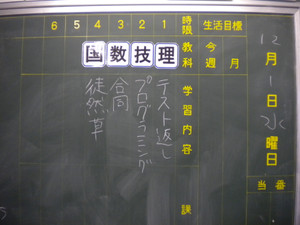 生活目標
今
週
月
時限
教科
学習内容
課
1 2 3 4 5 6
理
技
数
国
テスト返し
プログラミング
合同
徒然草
12
月
1
日
水
曜日
当番